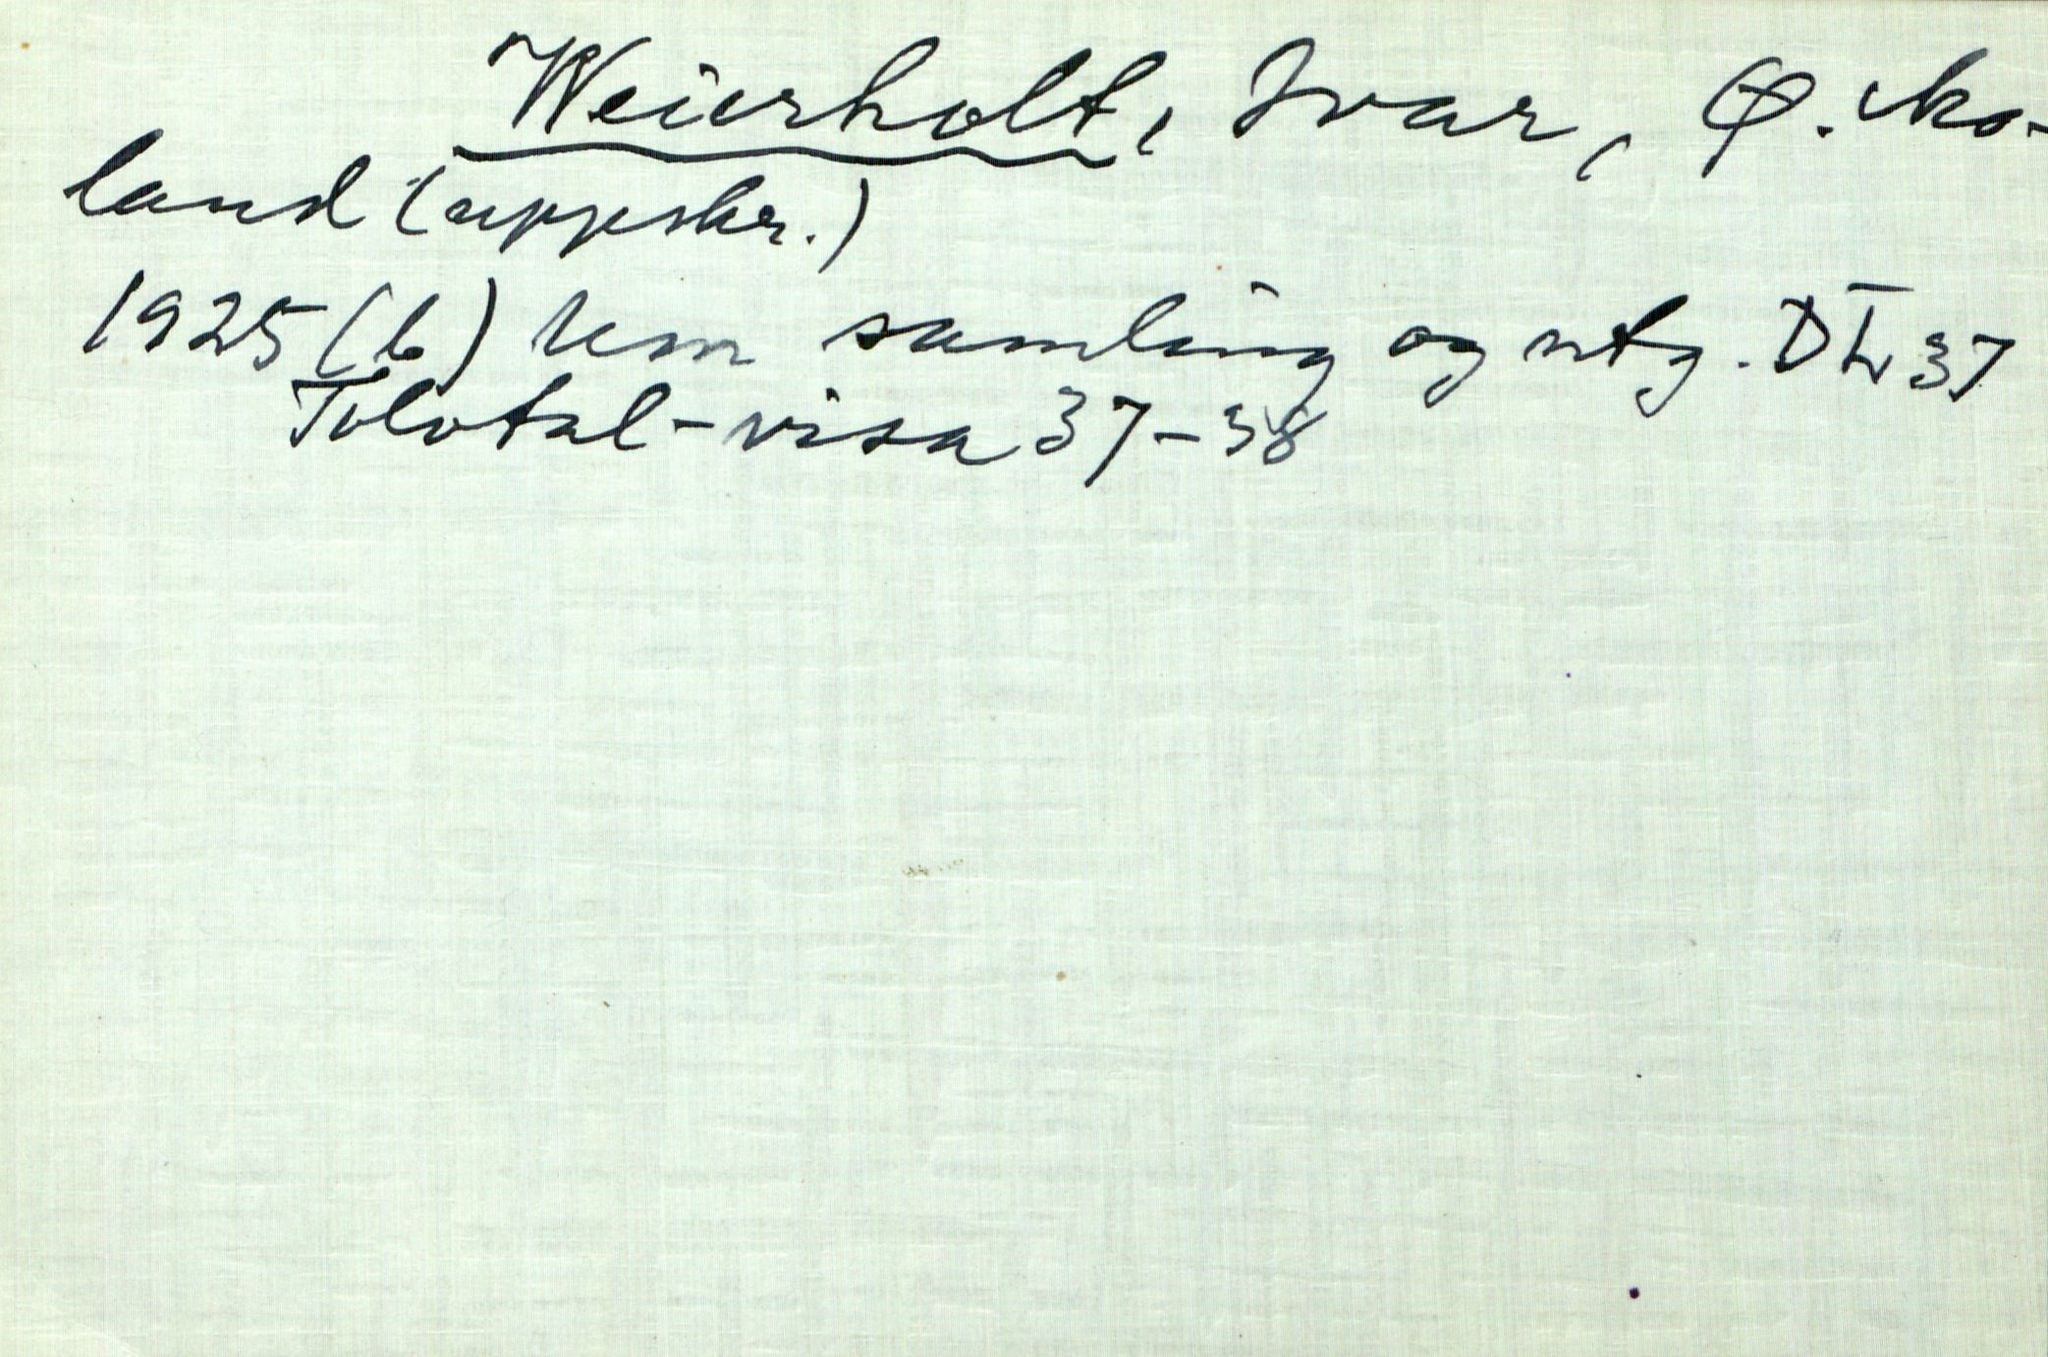 Weierholt, Ivar, Ø. Mo-
land (uppskr.)
1925 (b) Um samling og utg. 37
Tolvtal-visa 37-38